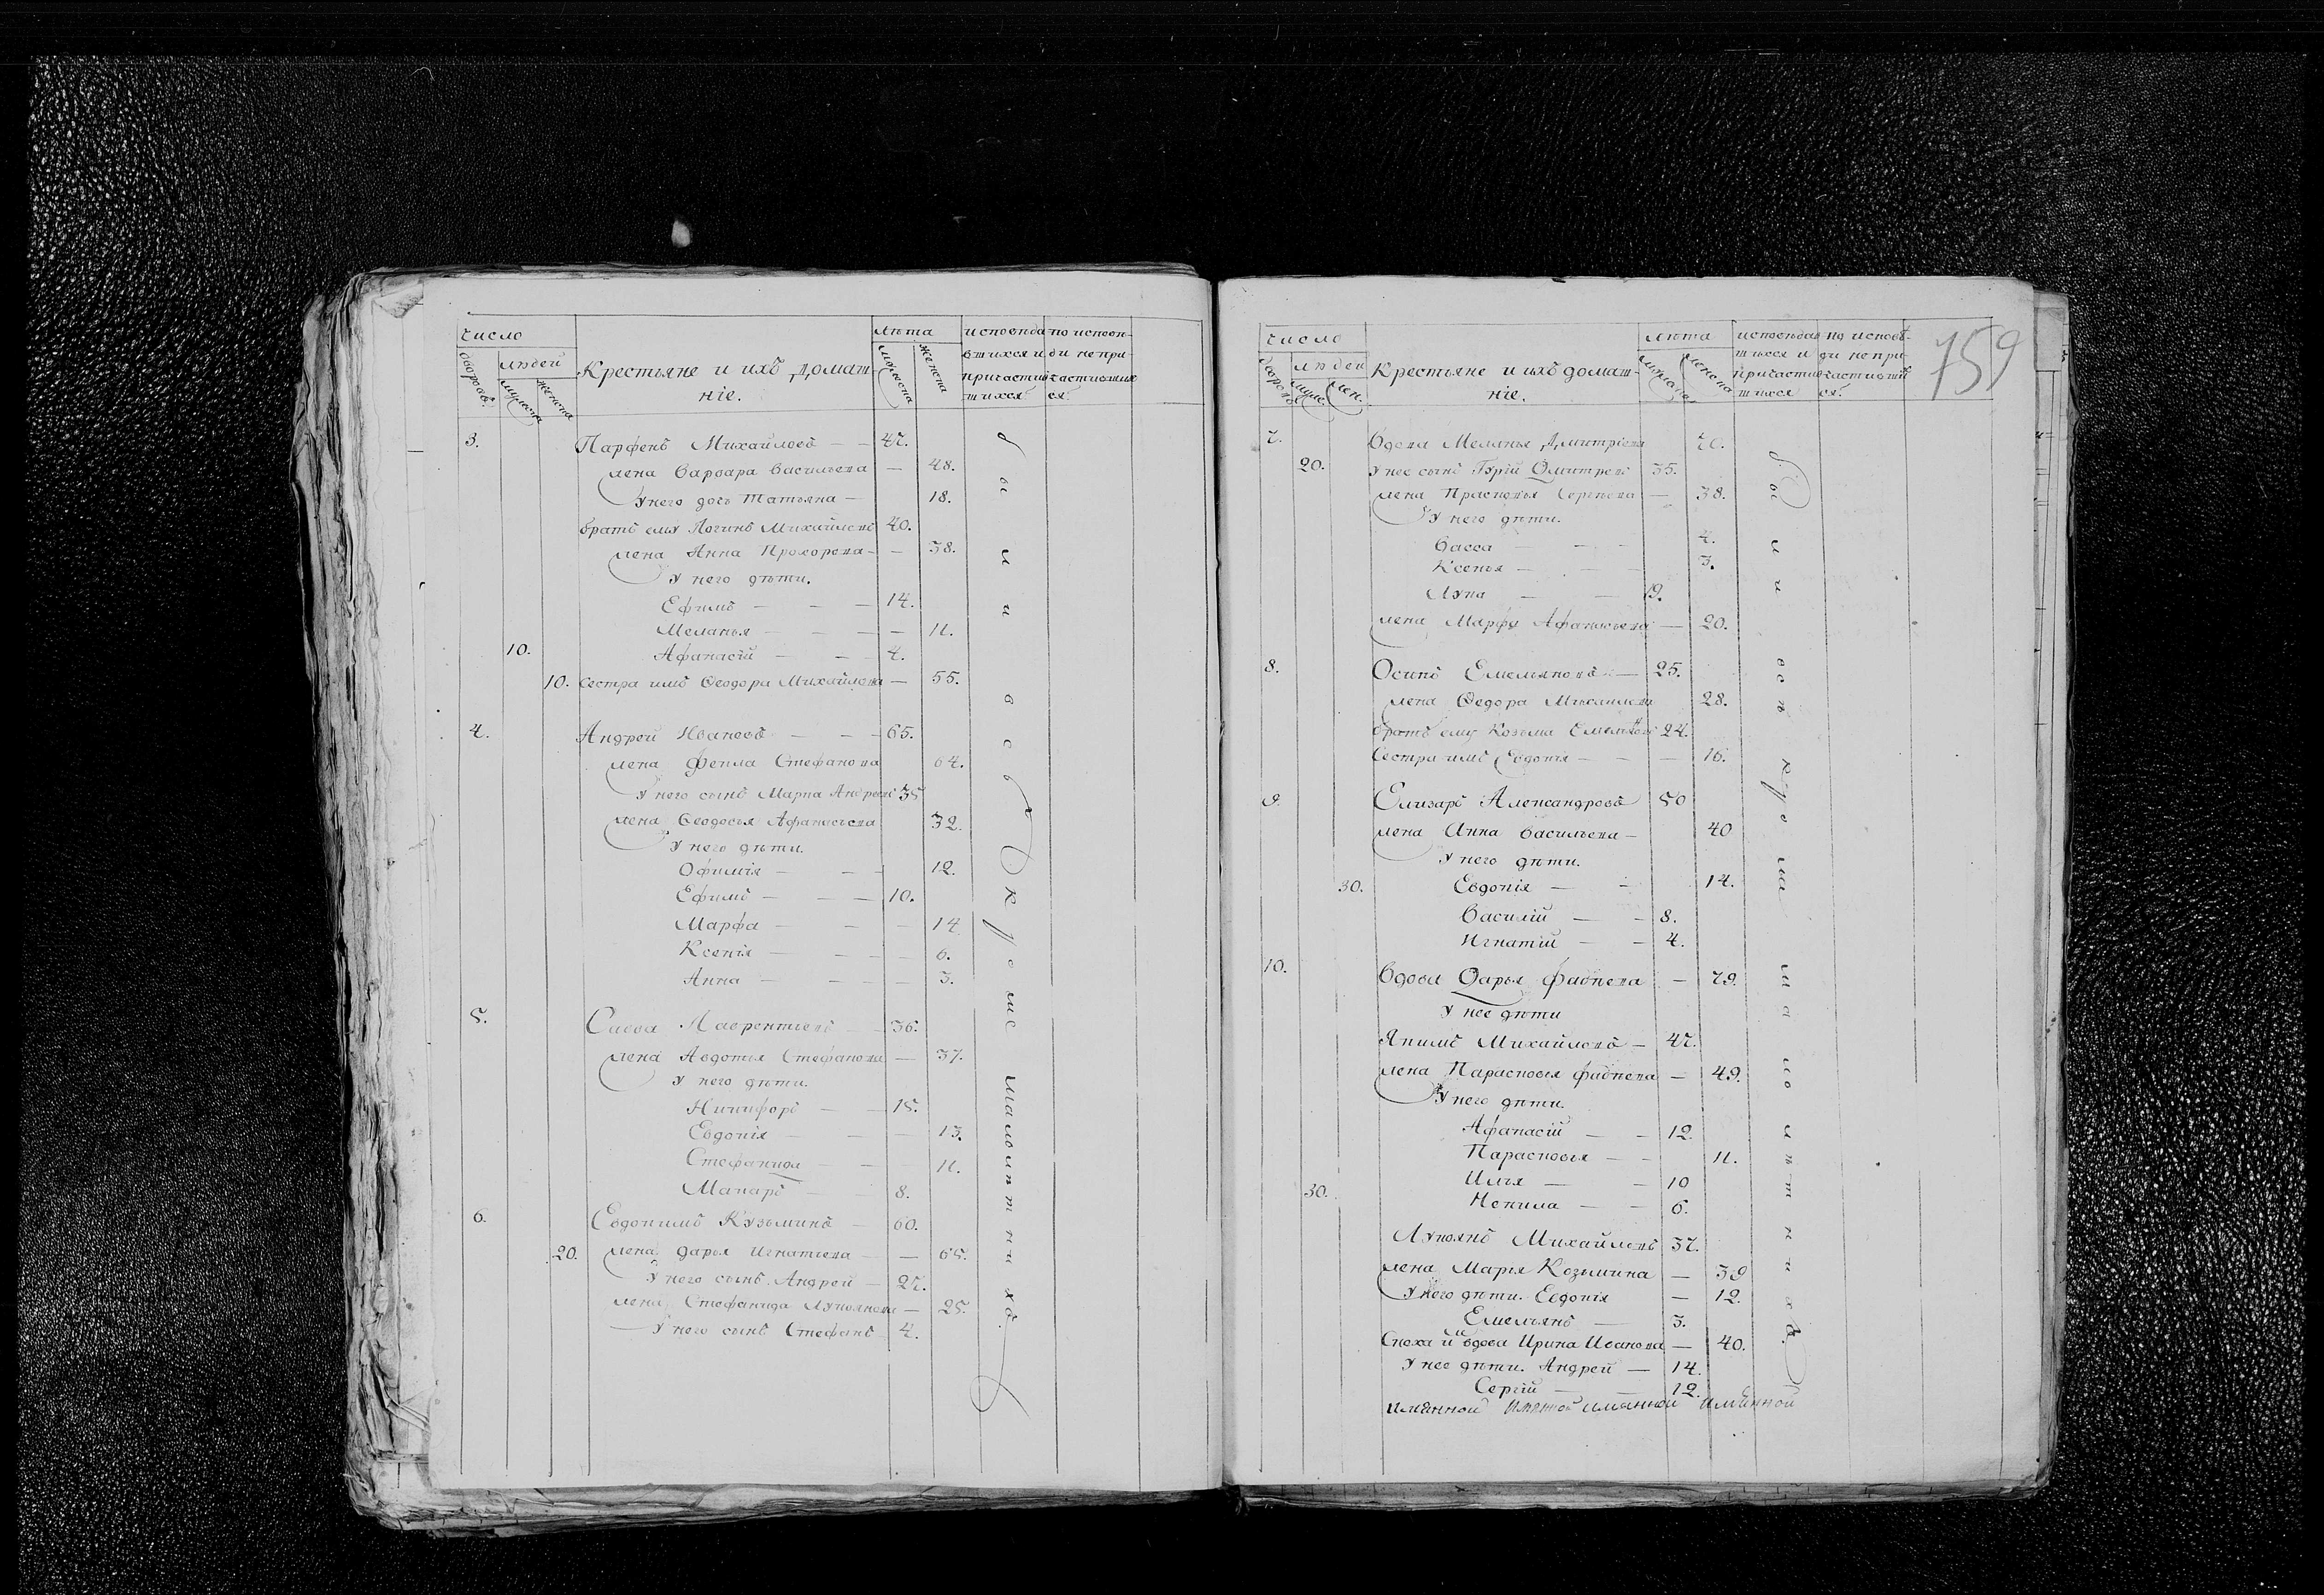 число
людей
дворовъ
мужеска
женска
Крестьяне и ихъ домаш-
ніе.
лѣта
мужеска
женска
исповѣда-
вшихся и
причастив-
шихся
по исповѣ-
ди не при-
частившие
ся.
3. Парфенъ Михайловъ — 47.
жена Варвара Васильева — 48.
У него дочь Татьяна — 18.
братъ ему Логинъ Михайловъ 40.
жена Анна Прохорова — 38.
У него дѣти.
Ефимъ — 14.
Меланья — 11.
10. Афанасій — 4.
10. Сестра имъ Ѳеодора Михайлова — 55.
4. Андрей Ивановъ — 65.
жена Фекла Стефанова 64.
У него сынъ Марка Андреевъ 35
жена Ѳеодосья Афанасьева 32.
У него дѣти.
Офимія — 12.
Ефимъ — 10.
Марфа — 14
Ксенія — 6.
Анна — 3.
5. Савва Лаврентьевъ — 36.
жена Авдотья Стефанова — 37.
У него дѣти.
Никифоръ — 15.
Евдокія — 13.
Стефанида — 11.
Макаръ — 8.
6. Евдокимъ Кузьминъ — 60.
20. жена Дарья Игнатьева — 65.
У него сынъ Андрей — 27.
жена Стефанида Лукоянова — 25.
У него сынъ Стефанъ 4.
были всѣ кромѣ малолѣтнихъ.
759
число
людей
дворовъ
муже.
жен.
Крестьяне и ихъ домаш-
ніе.
лѣта
исповѣдав-
шихся и
причастив-
шихся
по исповѣ-
ди не при-
частивші
ся.
7. Вдова Меланья Дмитріева 70.
20. У нее сынъ Гурій Дмитревъ 35.
жена Прасковья Сергѣева — 38.
У него дѣти.
Васса — 4.
Ксенья — 3.
Лука — 19.
жена Марфа Афанасьева — 20.
8. Осипъ Емельяновъ — 25.
жена Ѳедора Михайлова 28.
братъ ему Козьма Емельяновъ 24.
Сестра имъ Евдокія — 16.
9. Елизаръ Александровъ 50
жена Анна Васильева — 40
У него дѣти.
30. Евдокія — 14.
Василій — 8.
Игнатій — 4.
10. Вдова Дарья Фадѣева — 79.
У нее дѣти
Якимъ Михайловъ — 47.
жена Парасковья Фадѣева — 49.
У него дѣти.
Афанасій — 12.
Парасковья — 11.
Илья — 10
30. Некила — 6.
Лукоянъ Михайловъ 37.
жена Марья Козьмина — 39
У него дѣти. Евдокія — 12.
Емельянъ — 3.
Сноха им вдова Ирина Иванова — 40.
У нее дѣти. Андрей — 14.
Сергій — 12.
имянной имяной имянной имянной
были всѣ кромѣ малолѣтнихъ.